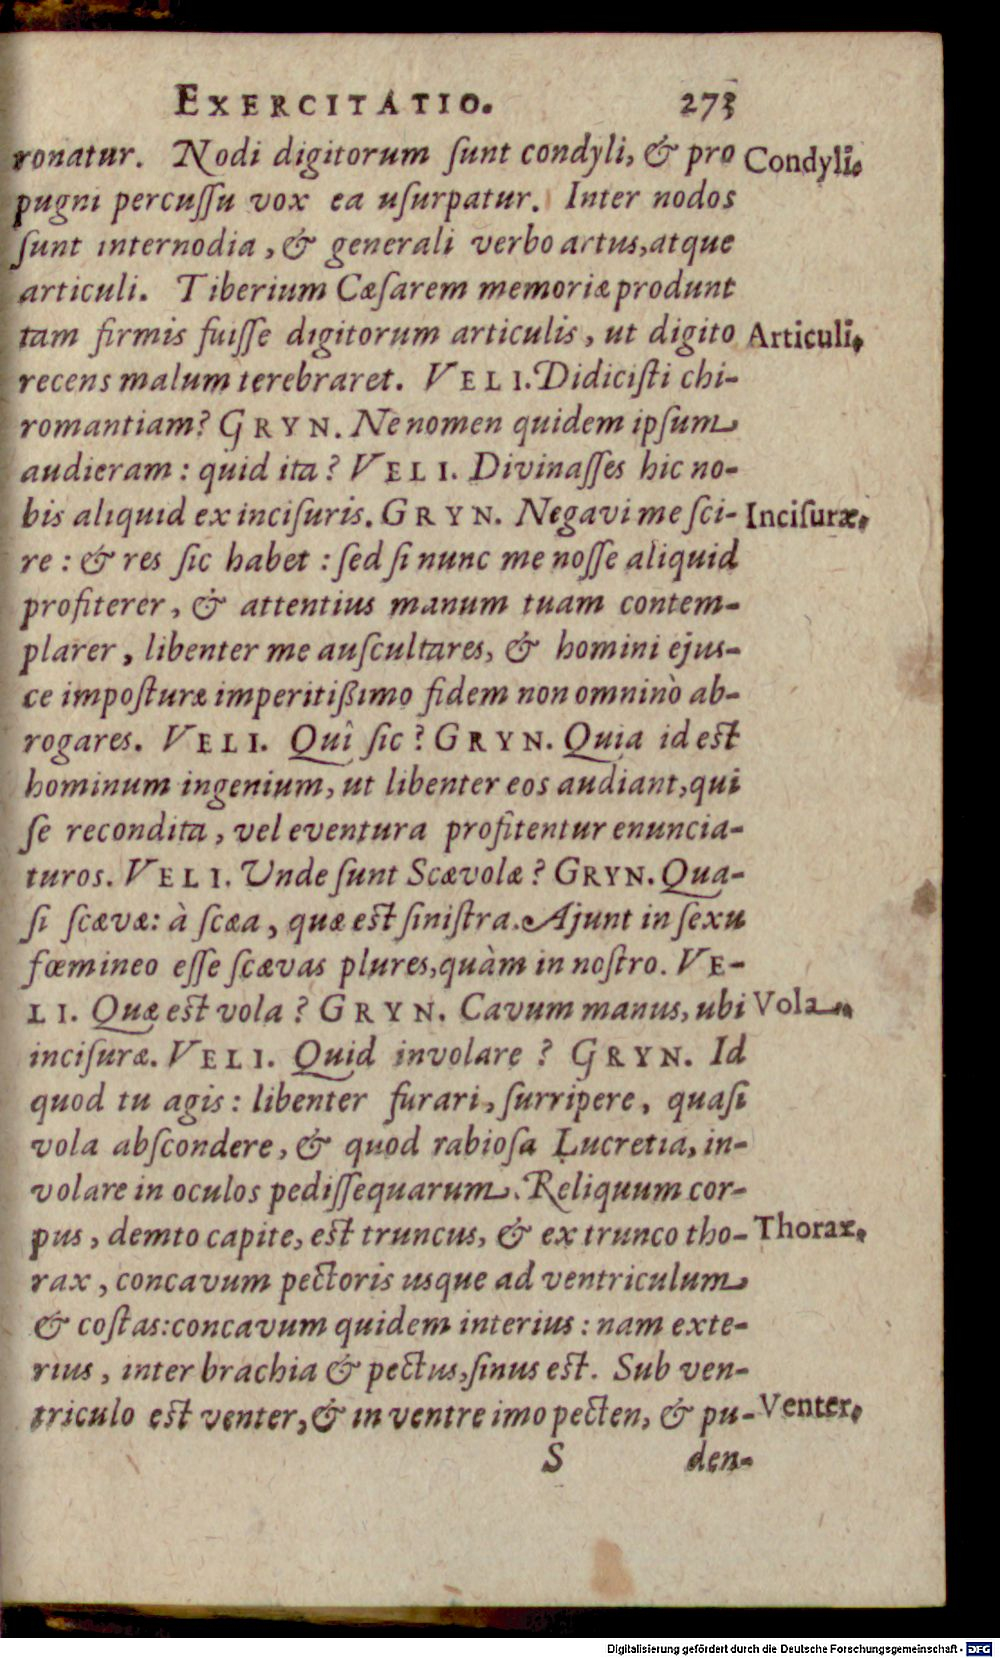 EXERCITATIO. 273
ronatur. Nodi digitorum ſunt condyli, & pro Condyli.
pugni percuſſu vox ea uſurpatur. Inter nodos
ſunt internodia, & generali verbo artus, atque
articuli. Tiberium Cæſarem memoriæ produnt
tam firmis fuiſſe digitorum articulis, ut digito Articuli.
recens malum terebraret. VELI. Didiciſti chi-
romantiam? GRYN. Ne nomen quidem ipſum
audieram: quid ita? VELI. Divinaſſes hic no-
bis aliquid ex inciſuris. GRYN. Negavi me ſci- Inciſuræ.
re: & res ſic habet: ſed ſi nunc me noſſe aliquid
profiterer, & attentius manum tuam contem-
plarer, libenter me auſcultares, & homini ejus-
ce impoſturæ imperitißimo fidem non omninò ab-
rogares. VELI. Quî ſic? GRYN. Quia id eſt
hominum ingenium, ut libenter eos audiant, qui
ſe recondita, vel eventura profitentur enuncia-
turos. VELI. Unde ſunt Scævolæ? GRYN. Qua-
ſi ſcævæ: à ſcæa, quæ eſt ſiniſtra. Ajunt in ſexu
fœmineo eſſe ſcævas plures, quàm in noſtro. VE-
LI. Quæ eſt vola? GRYN. Cavum manus, ubi Vola.
inciſuræ. VELI. Quid involare? GRYN. Id
quod tu agis: libenter furari, ſurripere, quaſi
vola abſcondere, & quod rabioſa Lucretia, in-
volare in oculos pediſſequarum. Reliquum cor-
pus, demto capite, eſt truncus, & ex trunco tho- Thorax.
rax, concavum pectoris usque ad ventriculum
& coſtas: concavum quidem interius: nam exte-
rius, inter brachia & pectus, ſinus eſt. Sub ven-
triculo eſt venter, & in ventre imo pecten, & pu- Venter.
S den-
Digitalisierung gefördert durch die Deutsche Forschungsgemeinschaft - DFG